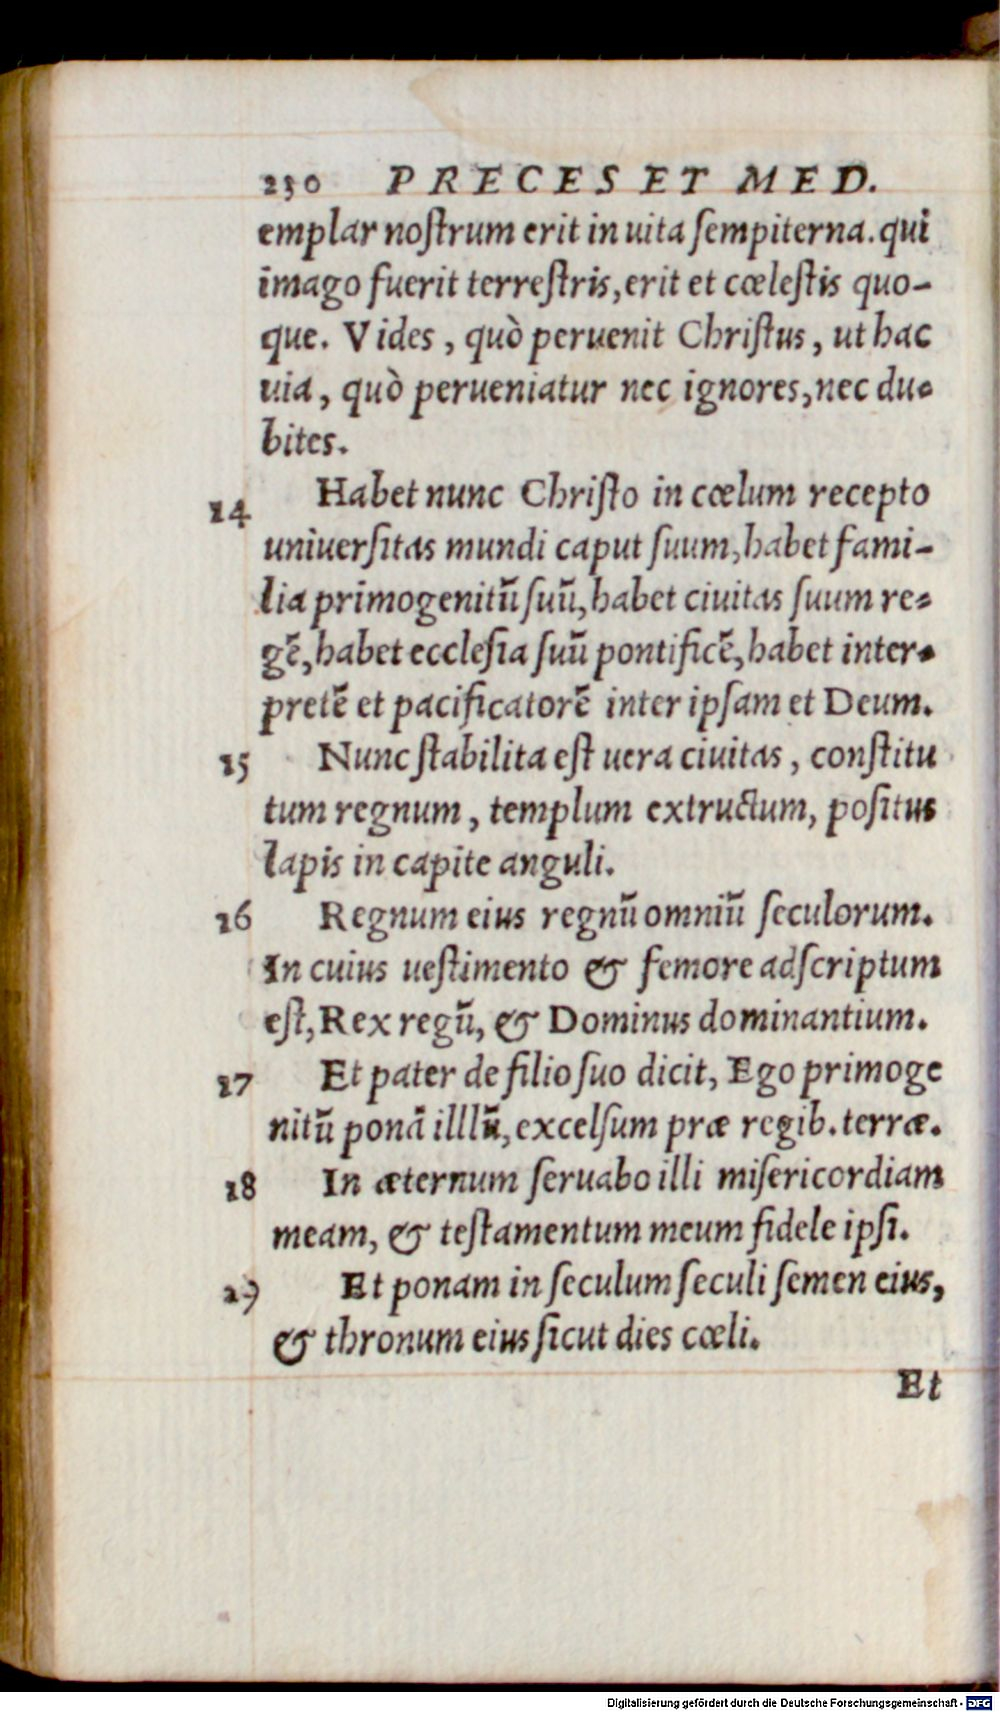 230 PRECES ET MED.
emplar noſtrum erit in uita ſempiterna. qui
imago fuerit terreſtris, erit et cœleſtis quo-
que. Vides, quò peruenit Chriſtus, ut hac
uia, quò perueniatur nec ignores, nec du-
bites.
14 Habet nunc Chriſto in cœlum recepto
uniuerſitas mundi caput ſuum, habet fami-
lia primogenitũ ſuũ, habet ciuitas ſuum re-
gẽ, habet eccleſia ſuũ pontificẽ, habet inter-
pretẽ et pacificatorẽ inter ipſam et Deum.
15 Nunc ſtabilita eſt uera ciuitas, conſtitu
tum regnum, templum extructum, poſitus
lapis in capite anguli.
16 Regnum eius regnũ omniũ ſeculorum.
In cuius ueſtimento & femore adſcriptum
eſt, Rex regũ, & Dominus dominantium.
17 Et pater de filio ſuo dicit, Ego primoge
nitũ ponã illlũ, excelſum præ regib. terræ.
18 In æternum ſeruabo illi miſericordiam
meam, & teſtamentum meum fidele ipſi.
19 Et ponam in ſeculum ſeculi ſemen eius,
& thronum eius ſicut dies cœli.
Et
Digitalisierung gefördert durch die Deutsche Forschungsgemeinschaft - DFG